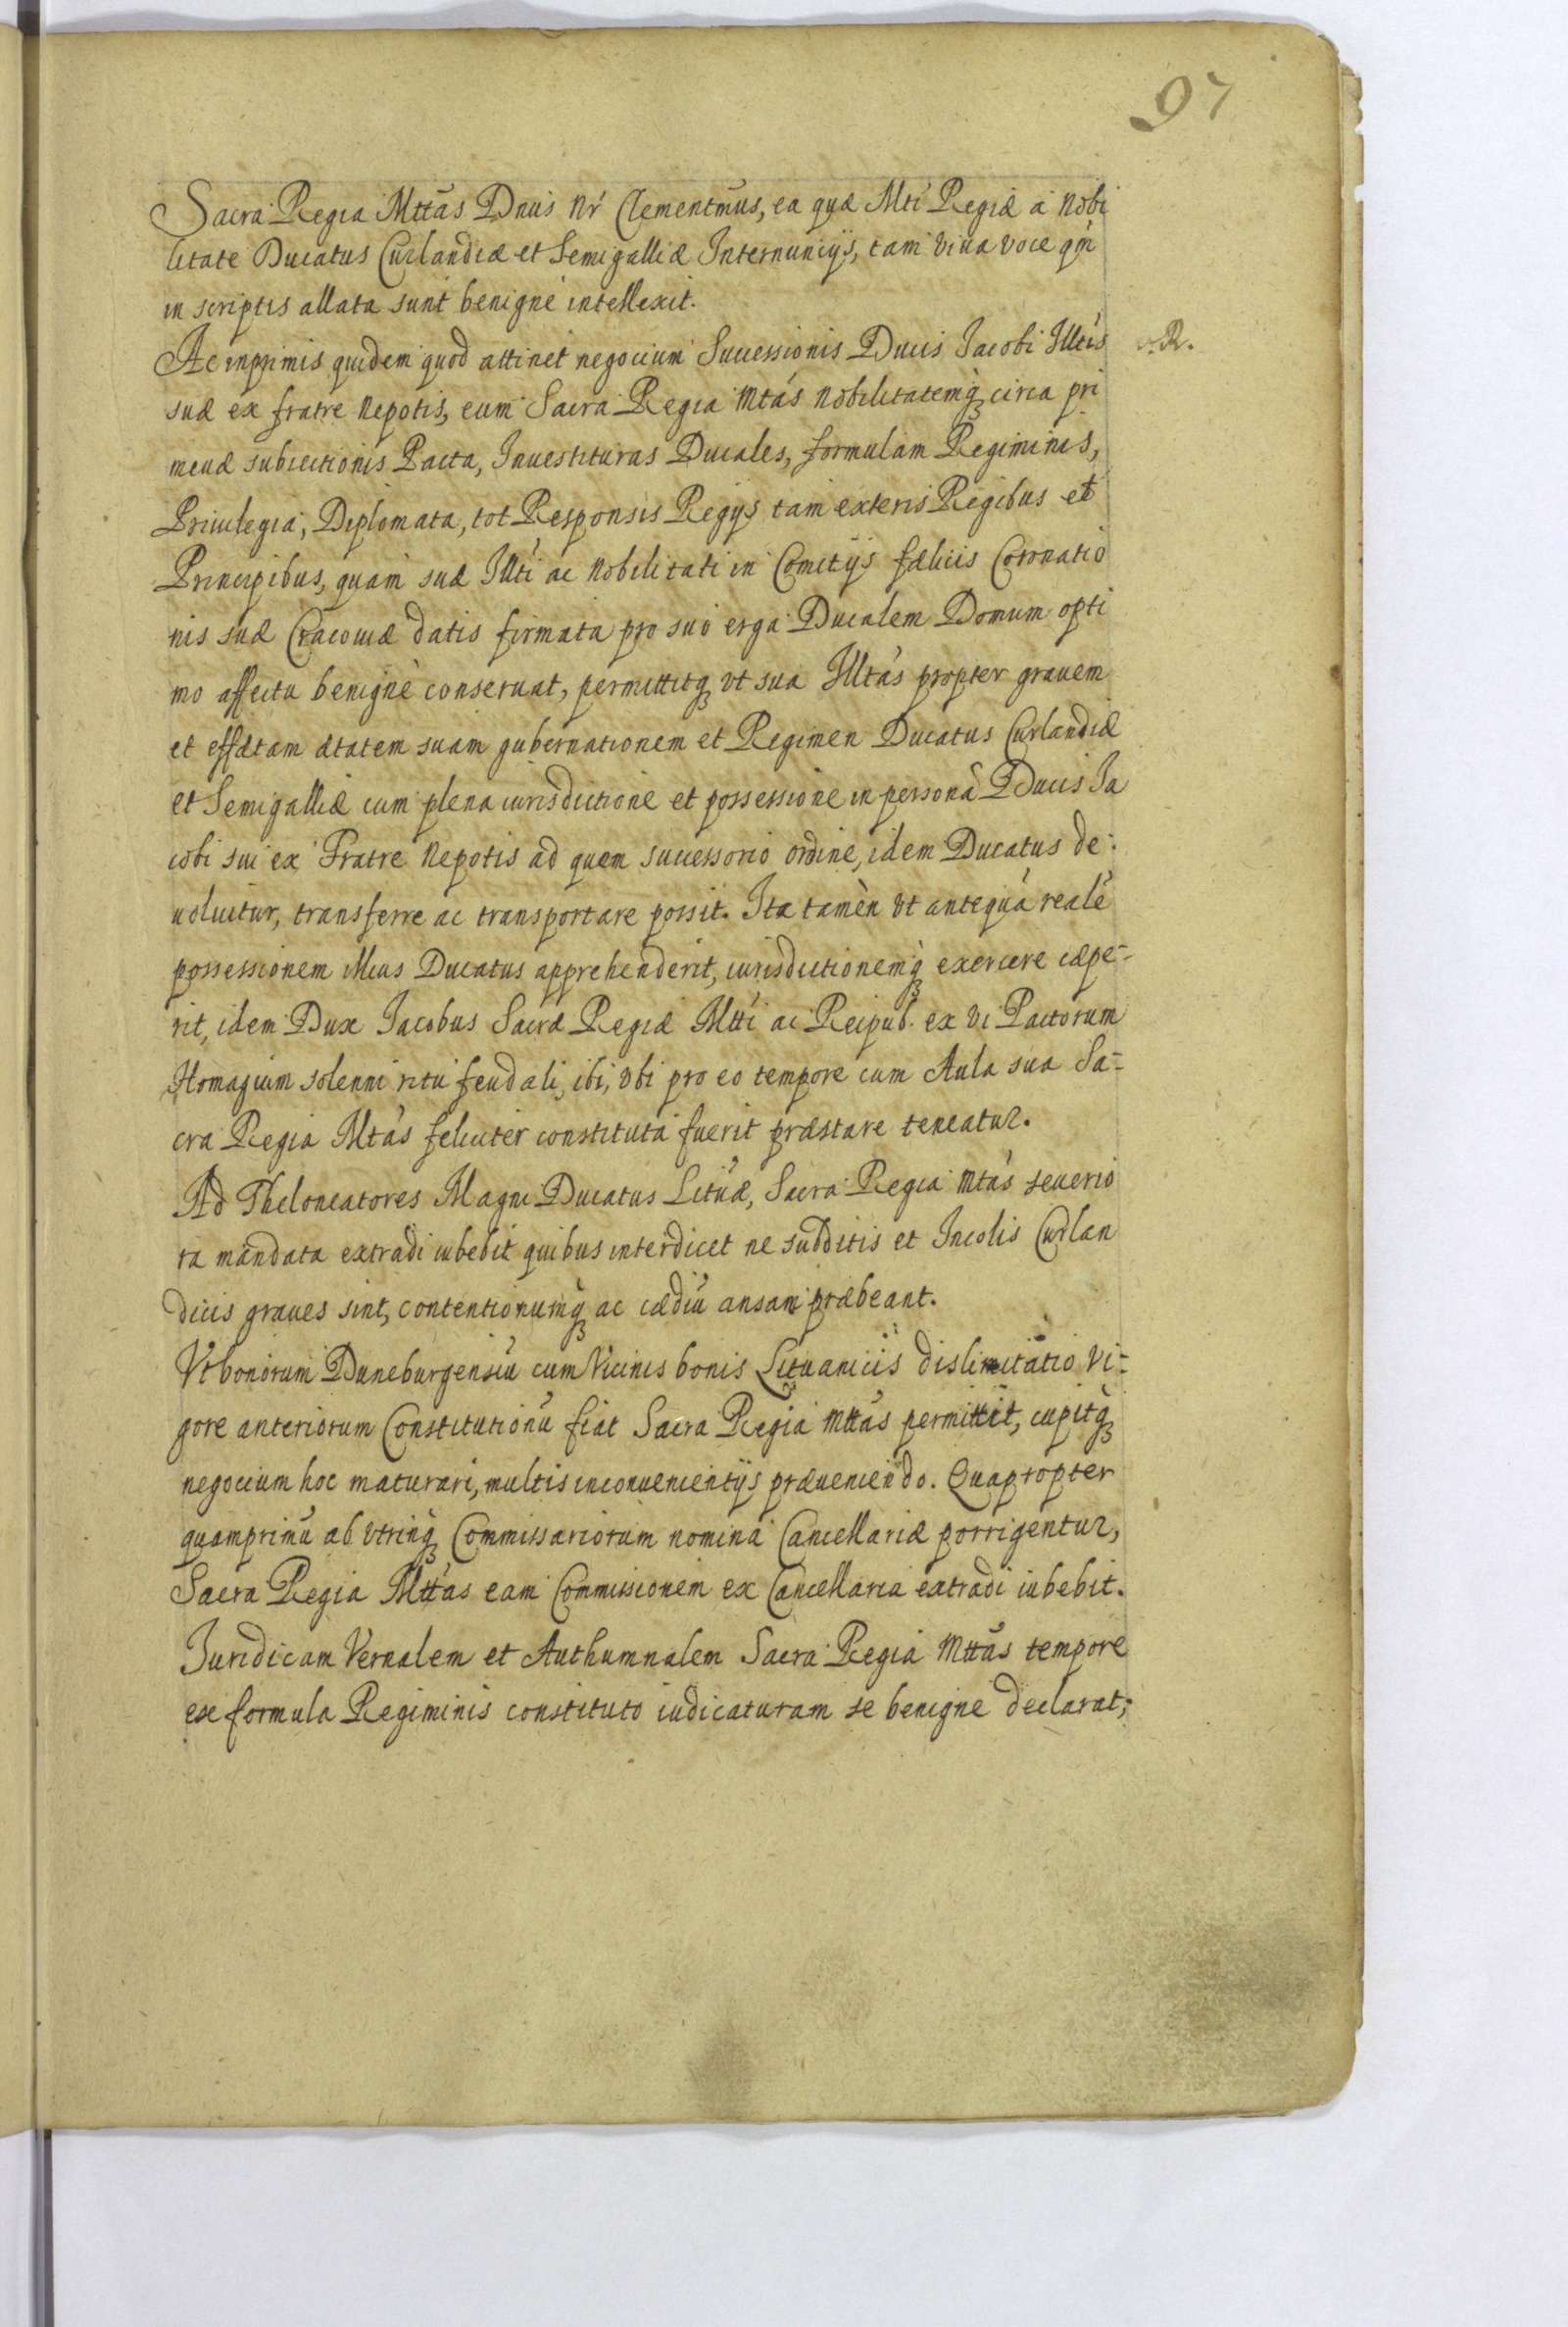 97
Sacra Regia Mttas Dnus Nr Clementmus, ea quæ Mti Regiæ a Nobi
litate Ducatus Curlandiæ et Semigalliæ Internuncijs, tam viua voce qm
in scriptis allata sunt benigne intellexit.
Ac inprimis quidem quod attinet negocium Successionis Ducis Jacobi Illtis
suæ ex fratre Nepotis, eum Sacra Regia Mtas Nobilitatemq circa pri
meuæ subiectionis Pacta, Inuestituras Ducales, formulam Regiminis,
Priuilegia, Diplomata, tot Responsis Regijs tam exteris Regibus et
Principibus, quam suæ Illti ac Nobilitati in Comitijs fælicis Coronatio
nis suæ Cracouiæ datis firmata pro suo erga Ducalem Domum opti
mo affectu benignè conseruat, permittitq vt sua Illtas propter grauem
et effætam ætatem suam gubernationem et Regimen Ducatus Curlandiæ
et Semigalliæ cum plena iurisdictione et possessione in personà Ducis Ja
cobi sui ex Fratre Nepotis ad quem successorio ordine, idem Ducatus de-
uoluitur, transferre ac transportare possit. Ita tamèn vt antequà realè
possessionem illius Ducatus apprehenderit, iurisdictionemq exercere cæpe-
rit, idem Dux Jacobus Sacræ Regiæ Mtti ac Reipub. ex vi Pactorum
Homagium solenni ritu feudali, ibi, vbi pro eo tempore cum Aula sua Sa-
cra Regia Mtas feliciter constituta fuerit præstare teneatur.
Ad Theloneatores Magni Ducatus Lituæ, Sacra Regia Mtas seuerio
ra mandata extradi iubebit quibus interdicet ne subditis et Incolis Curlan
dicis graues sint, contentionumq ac cædiu ansam præbeant.
Vt bonorum Duneburgensiu cum Vicinis bonis Lituanicis dislimitatio vi-
gore anteriorum Constitutionu fiat Sacra Regia Mttas permittit, cupitq
negocium hoc maturari, multis inconuenientijs præueniendo. Quapropter
quamprimu ab vtrinq Commissariorum nomina Cancellariæ porrigentur,
Sacra Regia Mttas eam Commissionem ex Cancellaria extradi iubebit.
Juridicam Vernalem et Authumnalem Sacra Regia Mttas tempore
ex formula Regiminis constituto iudicaturam se benigne declarat;